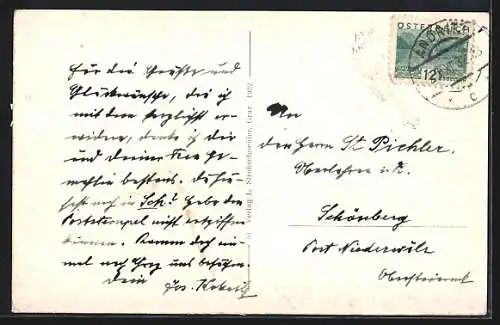 Für die Grüße und
Glückwünsche, die ich
mit dem herzlichst er-
widere, danke ich dir
und deiner Frau Ge-
mahlin bestens. Du
fast noch in Sch.? habe den
Poststempel nicht entziffern
können. Komme doch ein-
mal nach Graz uns besuchen
Dein
Jos.
Verlag L. Strohschneider, Graz 1932
ÖSTERREICH
12
An
den Herrn St. Pichler,
Oberlehrer i. R.
Schönberg
Post Niederwölz
Obersteiermark